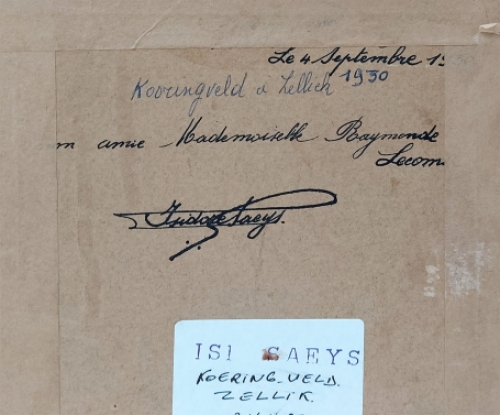 Le 4 Septembre 1
1930
Kooringveld à Zellich
m amie Mademoiselle Raymonde
Lecom
Isidore Saeys.
ISI SAEYS
KOERING-VELD.
ZELLIK.